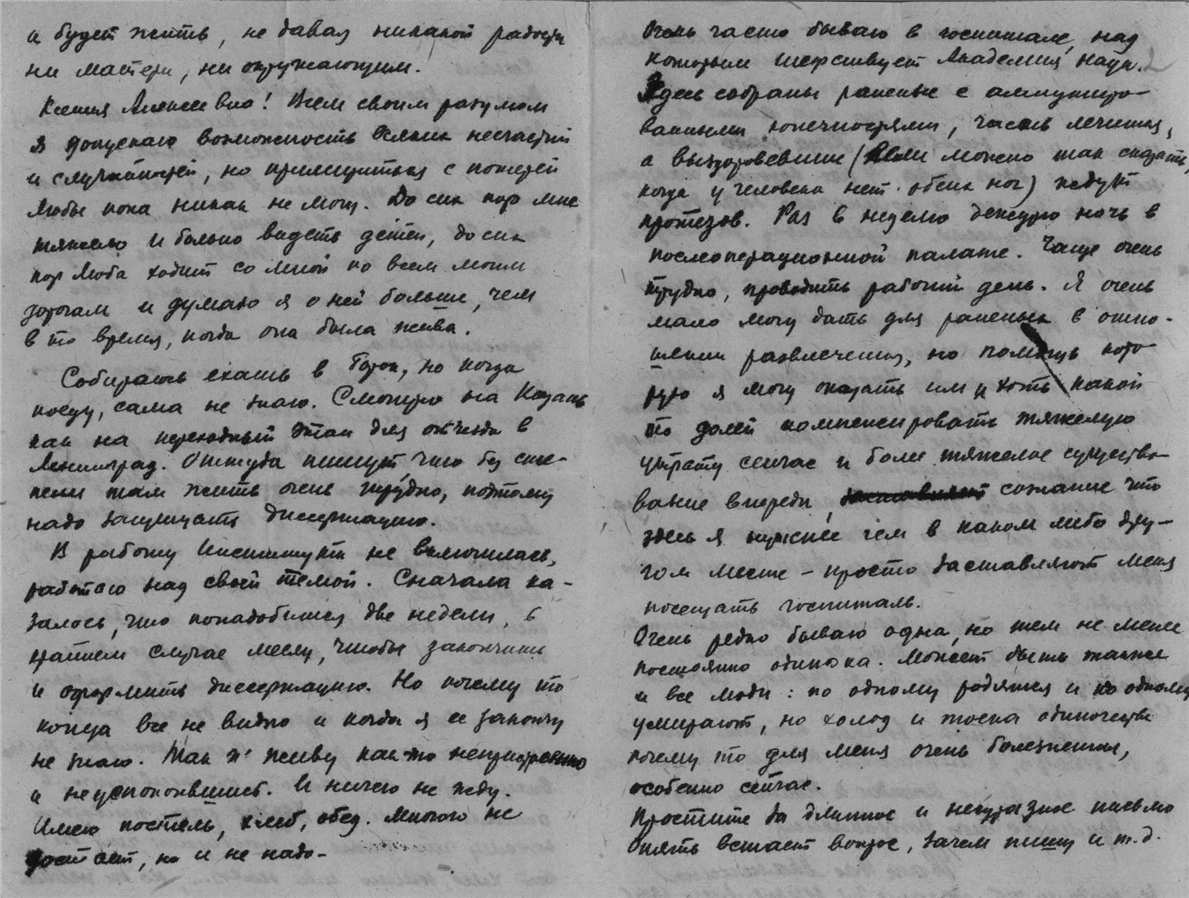 и будет жить, не давая никакой радости
ни матери, ни окружающим.
Ксения Алексеевна! Всем своим разумом
я допускаю возможность всяких несчастий
и случайностей, но примириться с потерей
Любы пока никак не могу. До сих пор мне
тяжело и больно видеть детей, до сих
пор Люба ходит со мной по всем моим
дорогам и думаю я о ней больше, чем
в то время, когда она была жива.
Собираюсь ехать в Горок, но когда
поеду, сама не знаю. Смотрю на Казань
как на переходный этап для отъезда в
Ленинград. Оттуда пишут что без сте-
пени там жить очень трудно, поэтому
надо защищать диссертацию.
В работу Института не включилась,
работаю над своей темой. Сначала ка-
залось, что понадобится две недели, в
крайнем случае месяц, чтобы закончить
и оформить диссертацию. Но почему то
конца все не видно и когда я ее закончу
не знаю. Так и живу как-то неустроенно
и неуспокоившись. И ничего не жду.
Имею постель, хлеб, обед. Многого не
достает, но и не надо.
Очень часто бываю в госпитале, над
которым шефствует Академия Наук.
Здесь собраны раненые с ампутиро-
ванными конечностями, часть лечится,
а выздоровевшие (если можно так сказать,
когда у человека нет обеих ног) ждут
протезов. Раз в неделю дежурю ночь в
послеоперационной палате. Чаще очень
трудно, проводить рабочий день. Я очень
мало могу дать для раненых в отно-
шении развлечения, но помощь кото
рую я могу оказать им и хоть какой
то долей компенсировать тяжелую
утрату сейчас и более тяжелое существо-
вание впереди, сознание что
здесь я нужнее чем в каком либо дру-
гом месте – просто заставляют меня
посещать госпиталь.
Очень редко бываю одна, но тем не менее
постоянно одинока. Может быть также
и все люди: по одному родятся и по одному
умирают, но холод и тоска одиночества
почему то для меня очень болезненны,
особенно сейчас.
Простите за длинное и несуразное письмо
Опять встает вопрос, зачем пишу и т.д.